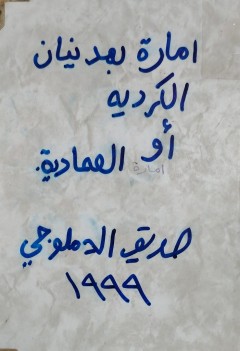 امارة بهدنيان
الكرديه
أو العمادية.
امارة
صديق الدملوجي
١٩٩٩